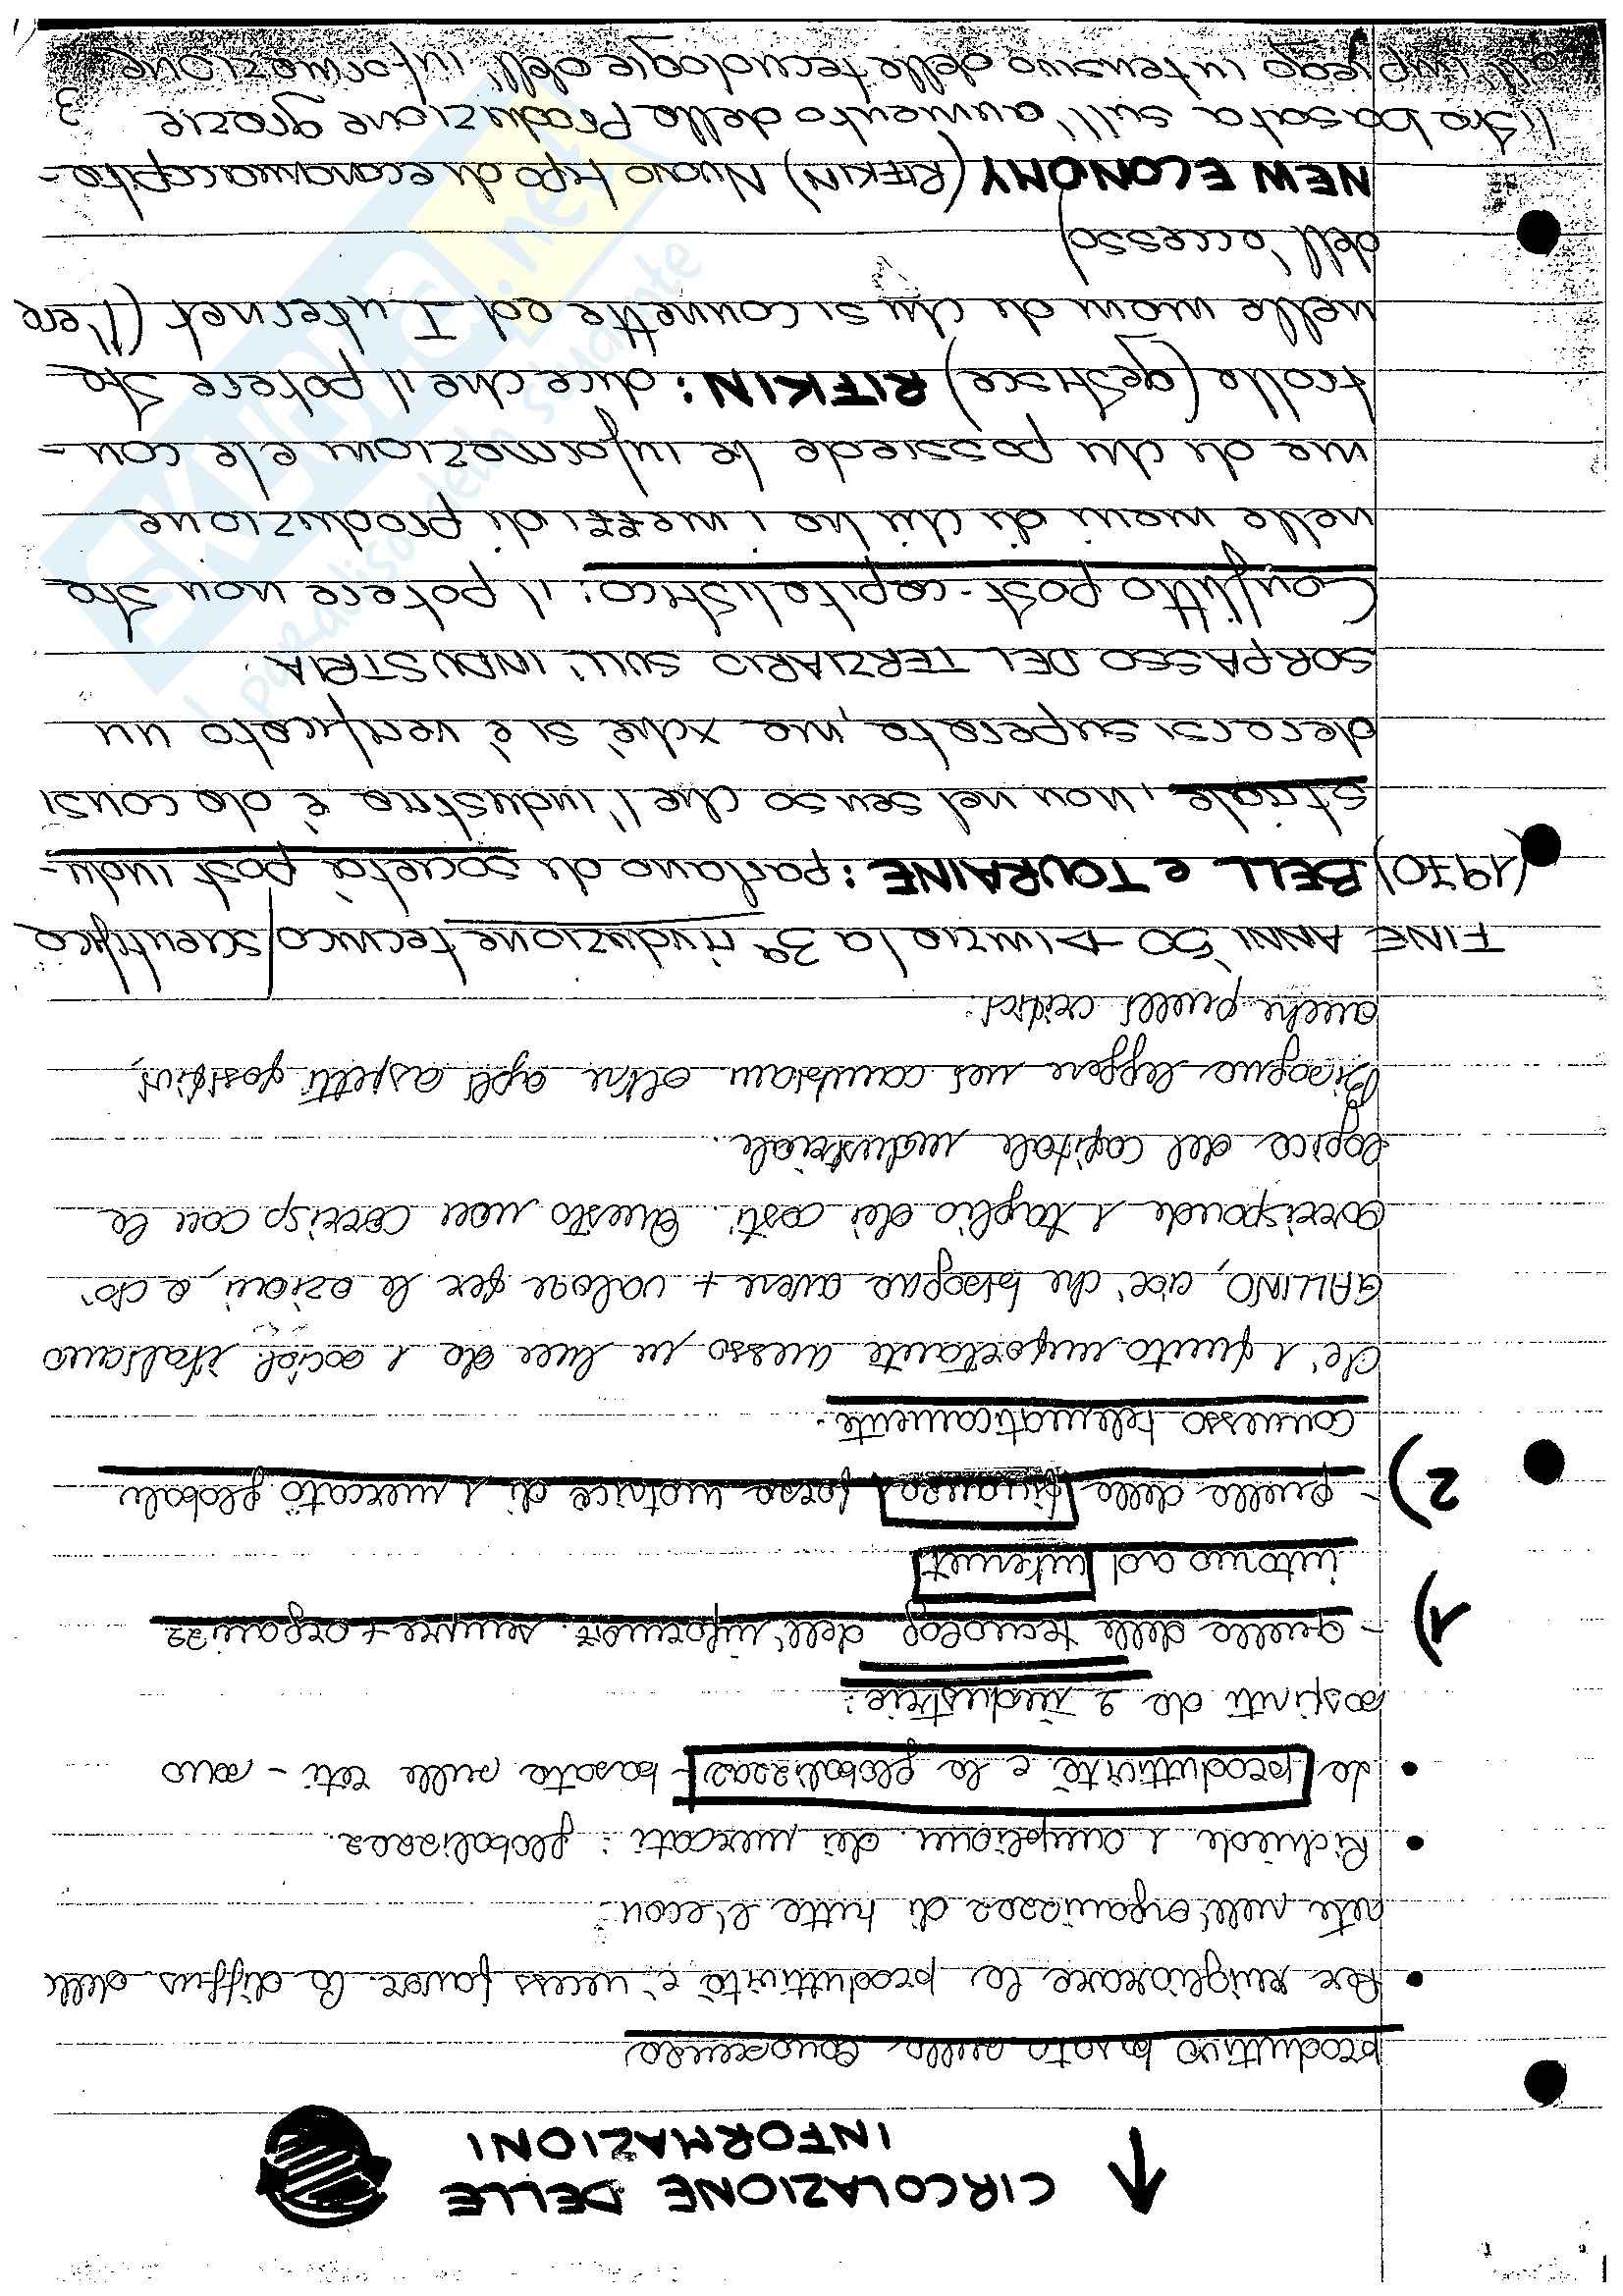 CIRCOLAZIONE DELLE
INFORMAZIONI
produttivo basato sulla conoscenza
• Per migliorare la produttività è necess favorir la diffus delle
rete nell'organizzaz di tutta l'econ.
• Richiede 1 ampliam dei mercati: globalizzaz.
• La produttività e la globalizzaz - basata sulle reti - sono
spinti da 2 industrie:
1) - quella delle tecnolog dell'informaz. sempre + organizz
intorno ad internet
2) - quella della finanza, forza motrice di 1 mercato globale
connesso telematicamente.
C'è 1 punto importante messo in luce da 1 sociol. italiano
GALLINO, cioè che bisogna avere + valore per le azioni, e ciò
corrisponde 1 taglio dei costi. Questo non corrisp con la
logica del capitale industriale.
Bisogna leggere nei cambiam oltre agli aspetti positivi,
anche quelli critici.
FINE ANNI '50 → inizia la 3° rivoluzione tecnico/scientifica
(1970) BELL e TOURAINE: parlano di società post indu-
striale, non nel senso che l'industria è da consi
derarsi superata, ma xchè si è verificato un
SORPASSO DEL TERZIARIO SULL'INDUSTRIA
Conflitto post-capitalistico: il potere non sta
nelle mani di chi ha i mezzi di produzione
ma di chi possiede le informazioni e le con-
trolla (gestisce) RIFKIN: dice che il potere sta
nelle mani di chi si connette ad Internet (l'era
dell'accesso)
NEW ECONOMY (RIFKIN) Nuovo tipo di economia capita-
listica basata sull'aumento della Produzione grazie
all'impiego intensivo delle tecnologie dell'informazione
3
SKUOLA.net
il paradiso dello studente